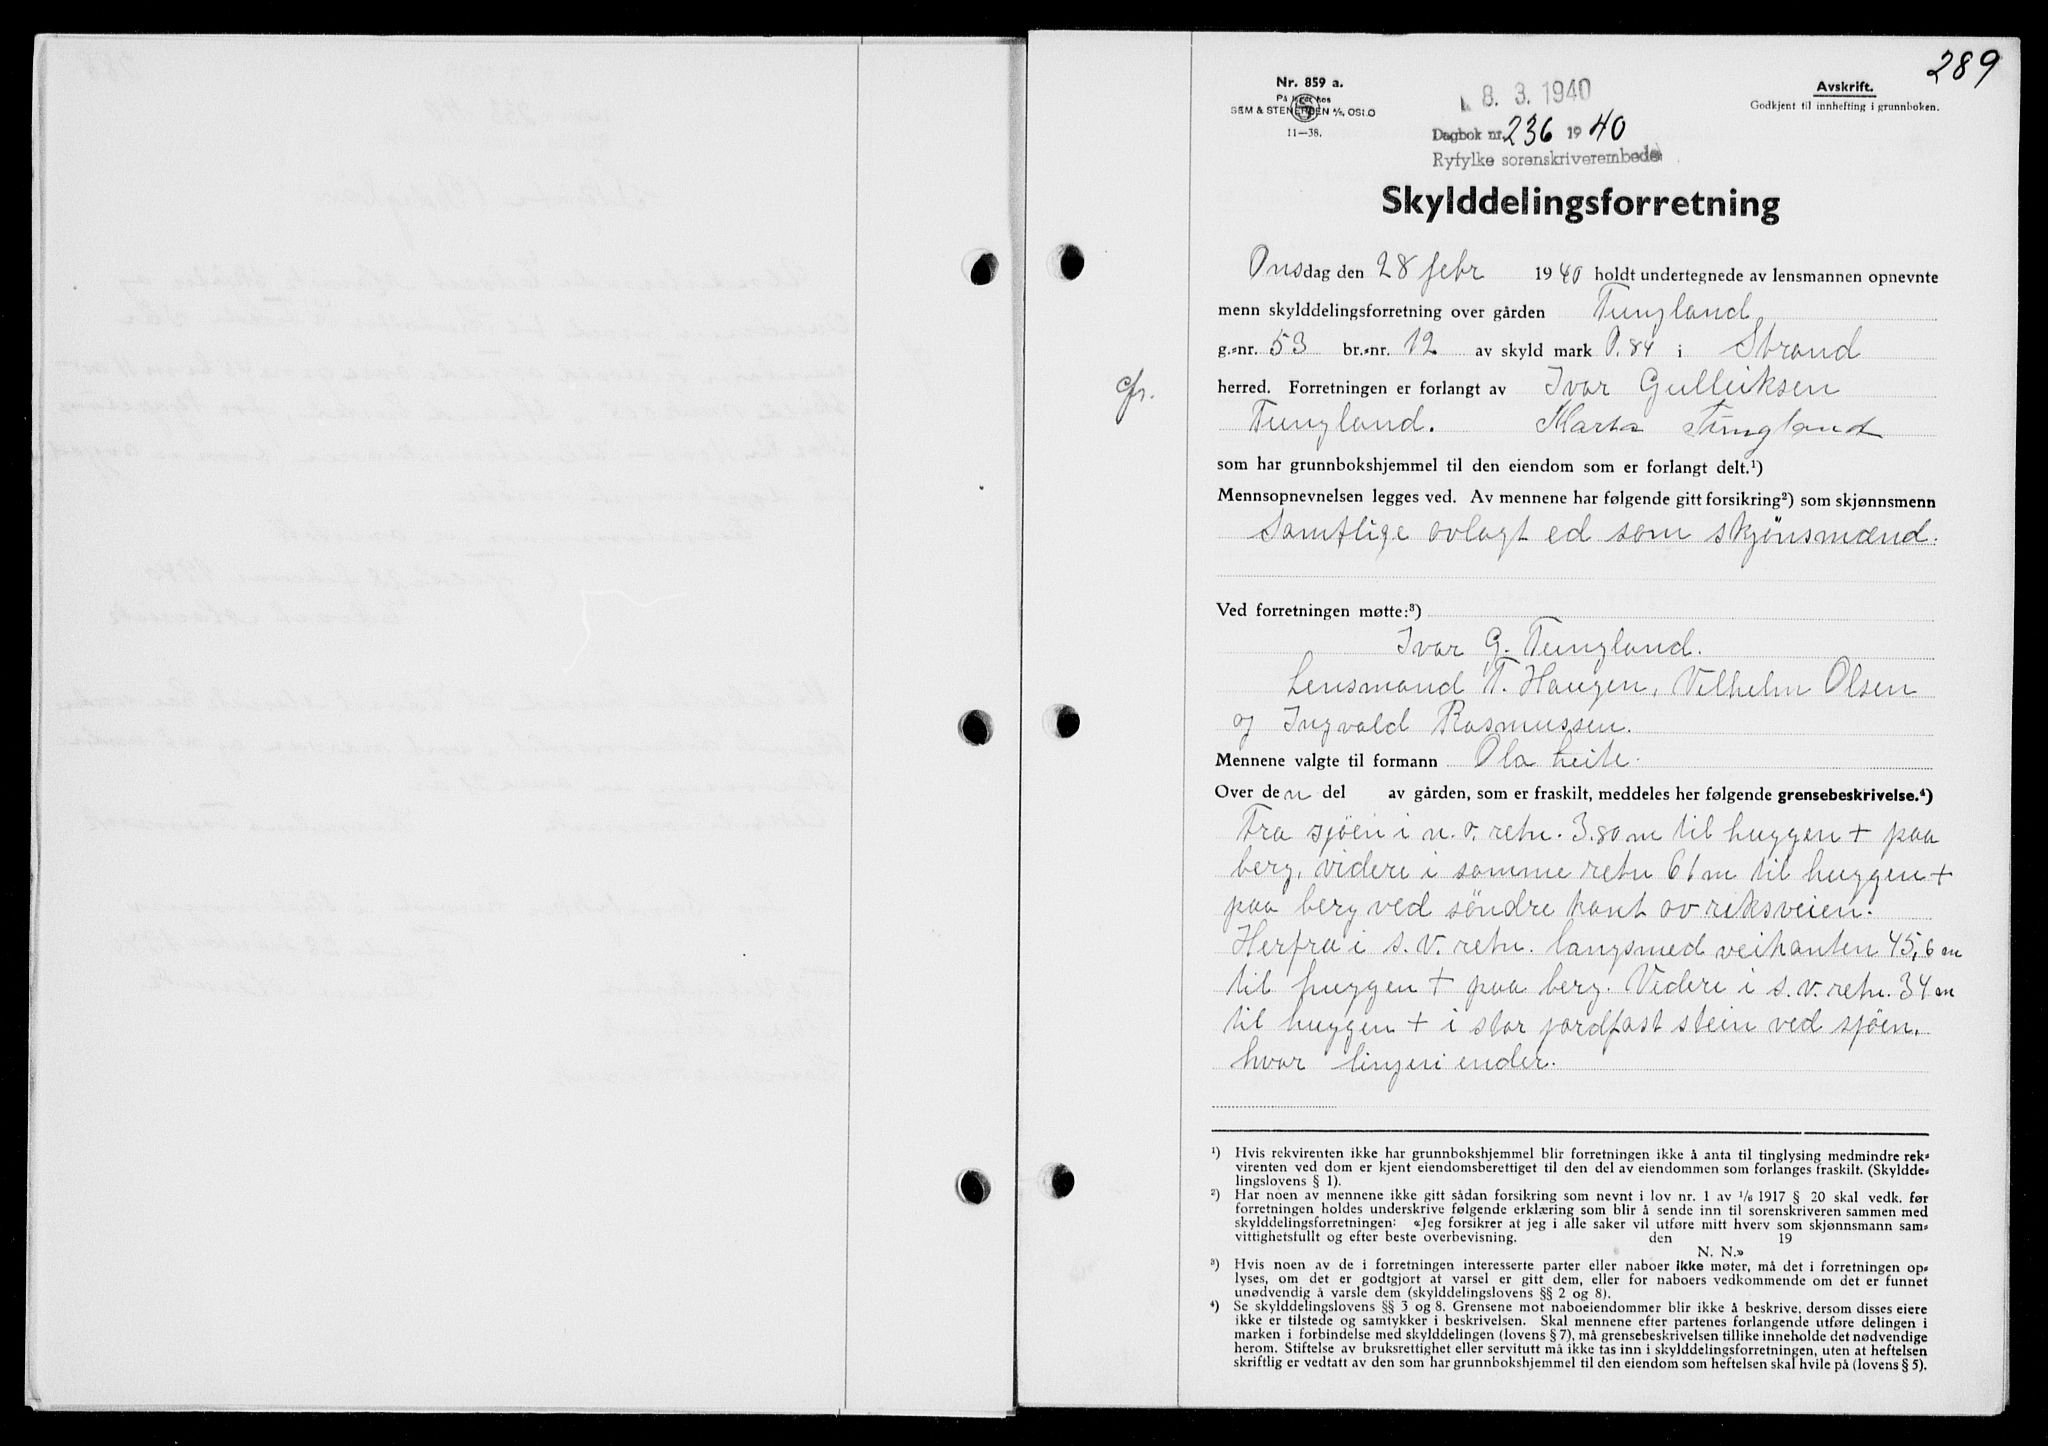 289
Nr. 859 a.
På lager hos
SEM & STENERSEN A/S, OSLO
11—38.
8. 3. 1940
Dagbok nr. 236 1940
Ryfylke sorenskriverembede
Avskrift.
Godkjent til innhefting i grunnboken.
Skylddelingsforretning
Onsdag den 28 febr 1940 holdt undertegnede av lensmannen opnevnte
menn skylddelingsforretning over gården Tungland
g.=nr. 53 br.=nr. 12 av skyld mark 0.84 i Strand
cfr.
herred. Forretningen er forlangt av Ivar Gulleiksen
Tungland. Marta Tungland
som har grunnbokshjemmel til den eiendom som er forlangt delt.¹)
Mennsopnevnelsen legges ved. Av mennene har følgende gitt forsikring²) som skjønnsmenn
Samtlige avlagt ed som skjönsmænd.
Ved forretningen møtte:³)
Ivar G. Tungland.
Lensmand T. Haugen, Vilhelm Olsen
og Ingvald Rasmussen.
Mennene valgte til formann Ola Leite.
Over den del av gården, som er fraskilt, meddeles her følgende grensebeskrivelse.⁴)
Fra sjöen i n.o. retn. 3.80 m til huggen + paa
berg, videre i samme retn 61 m til huggen +
paa berg ved söndre kant av riksveien.
Herfra i s.v. retn. langsmed veikanten 45,6 m
til huggen + paa berg. Videre i s.v. retn. 34 m
til huggen + i stor jordfast stein ved sjöen,
hvor linjen ender.
¹) Hvis rekvirenten ikke har grunnbokshjemmel blir forretningen ikke å anta til tinglysing medmindre rek=
virenten ved dom er kjent eiendomsberettiget til den del av eiendommen som forlanges fraskilt. (Skyldde=
lingslovens § 1).
²) Har noen av mennene ikke gitt sådan forsikring som nevnt i lov nr. 1 av ¹/₆ 1917 § 20 skal vedk. før
forretningen holdes underskrive følgende erklæring som blir å sende inn til sorenskriveren sammen med
skylddelingsforretningen: «Jeg forsikrer at jeg i alle saker vil utføre mitt hverv som skjønnsmann sam=
vittighetsfullt og efter beste overbevisning. den 19
N. N.»
³) Hvis noen av de i forretningen interesserte parter eller naboer ikke møter, må det i forretningen op=
lyses, om det er godtgjort at varsel er gitt dem, eller for naboers vedkommende om det er funnet
unødvendig å varsle dem (skylddelingslovens §§ 2 og 8).
⁴) Se skylddelingslovens §§ 3 og 8. Grensene mot naboeiendommer blir ikke å beskrive, dersom disses eiere
ikke er tilstede og samtykker i beskrivelsen. Skal mennene efter partenes forlangende utføre delingen i
marken i forbindelse med skylddelingen (lovens § 7), må grensebeskrivelsen tillike inneholde det nødvendige
herom. Stiftelse av bruksrettighet eller servitutt må ikke tas inn i skylddelingsforretningen, uten at heftelsen
skriftlig er vedtatt av den som har grunnbokshjemmel til den eiendom som heftelsen skal hvile på (lovens § 5).